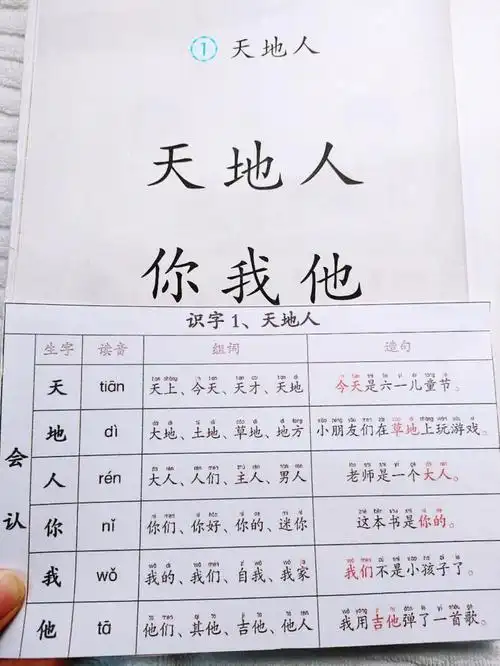 ① 天地人
天 地 人
你 我 他
识字 1、天地人
生字 读音 组词 造句
会认
天 tiān 天上、今天、天才、天地 今天是六一儿童节。
地 dì 大地、土地、草地、地方 小朋友们在草地上玩游戏。
人 rén 大人、人们、主人、男人 老师是一个大人。
你 nǐ 你们、你好、你的、迷你 这本书是你的。
我 wǒ 我的、我们、自我、我家 我们不是小孩子了。
他 tā 他们、其他、吉他、他人 我用吉他弹了一首歌。